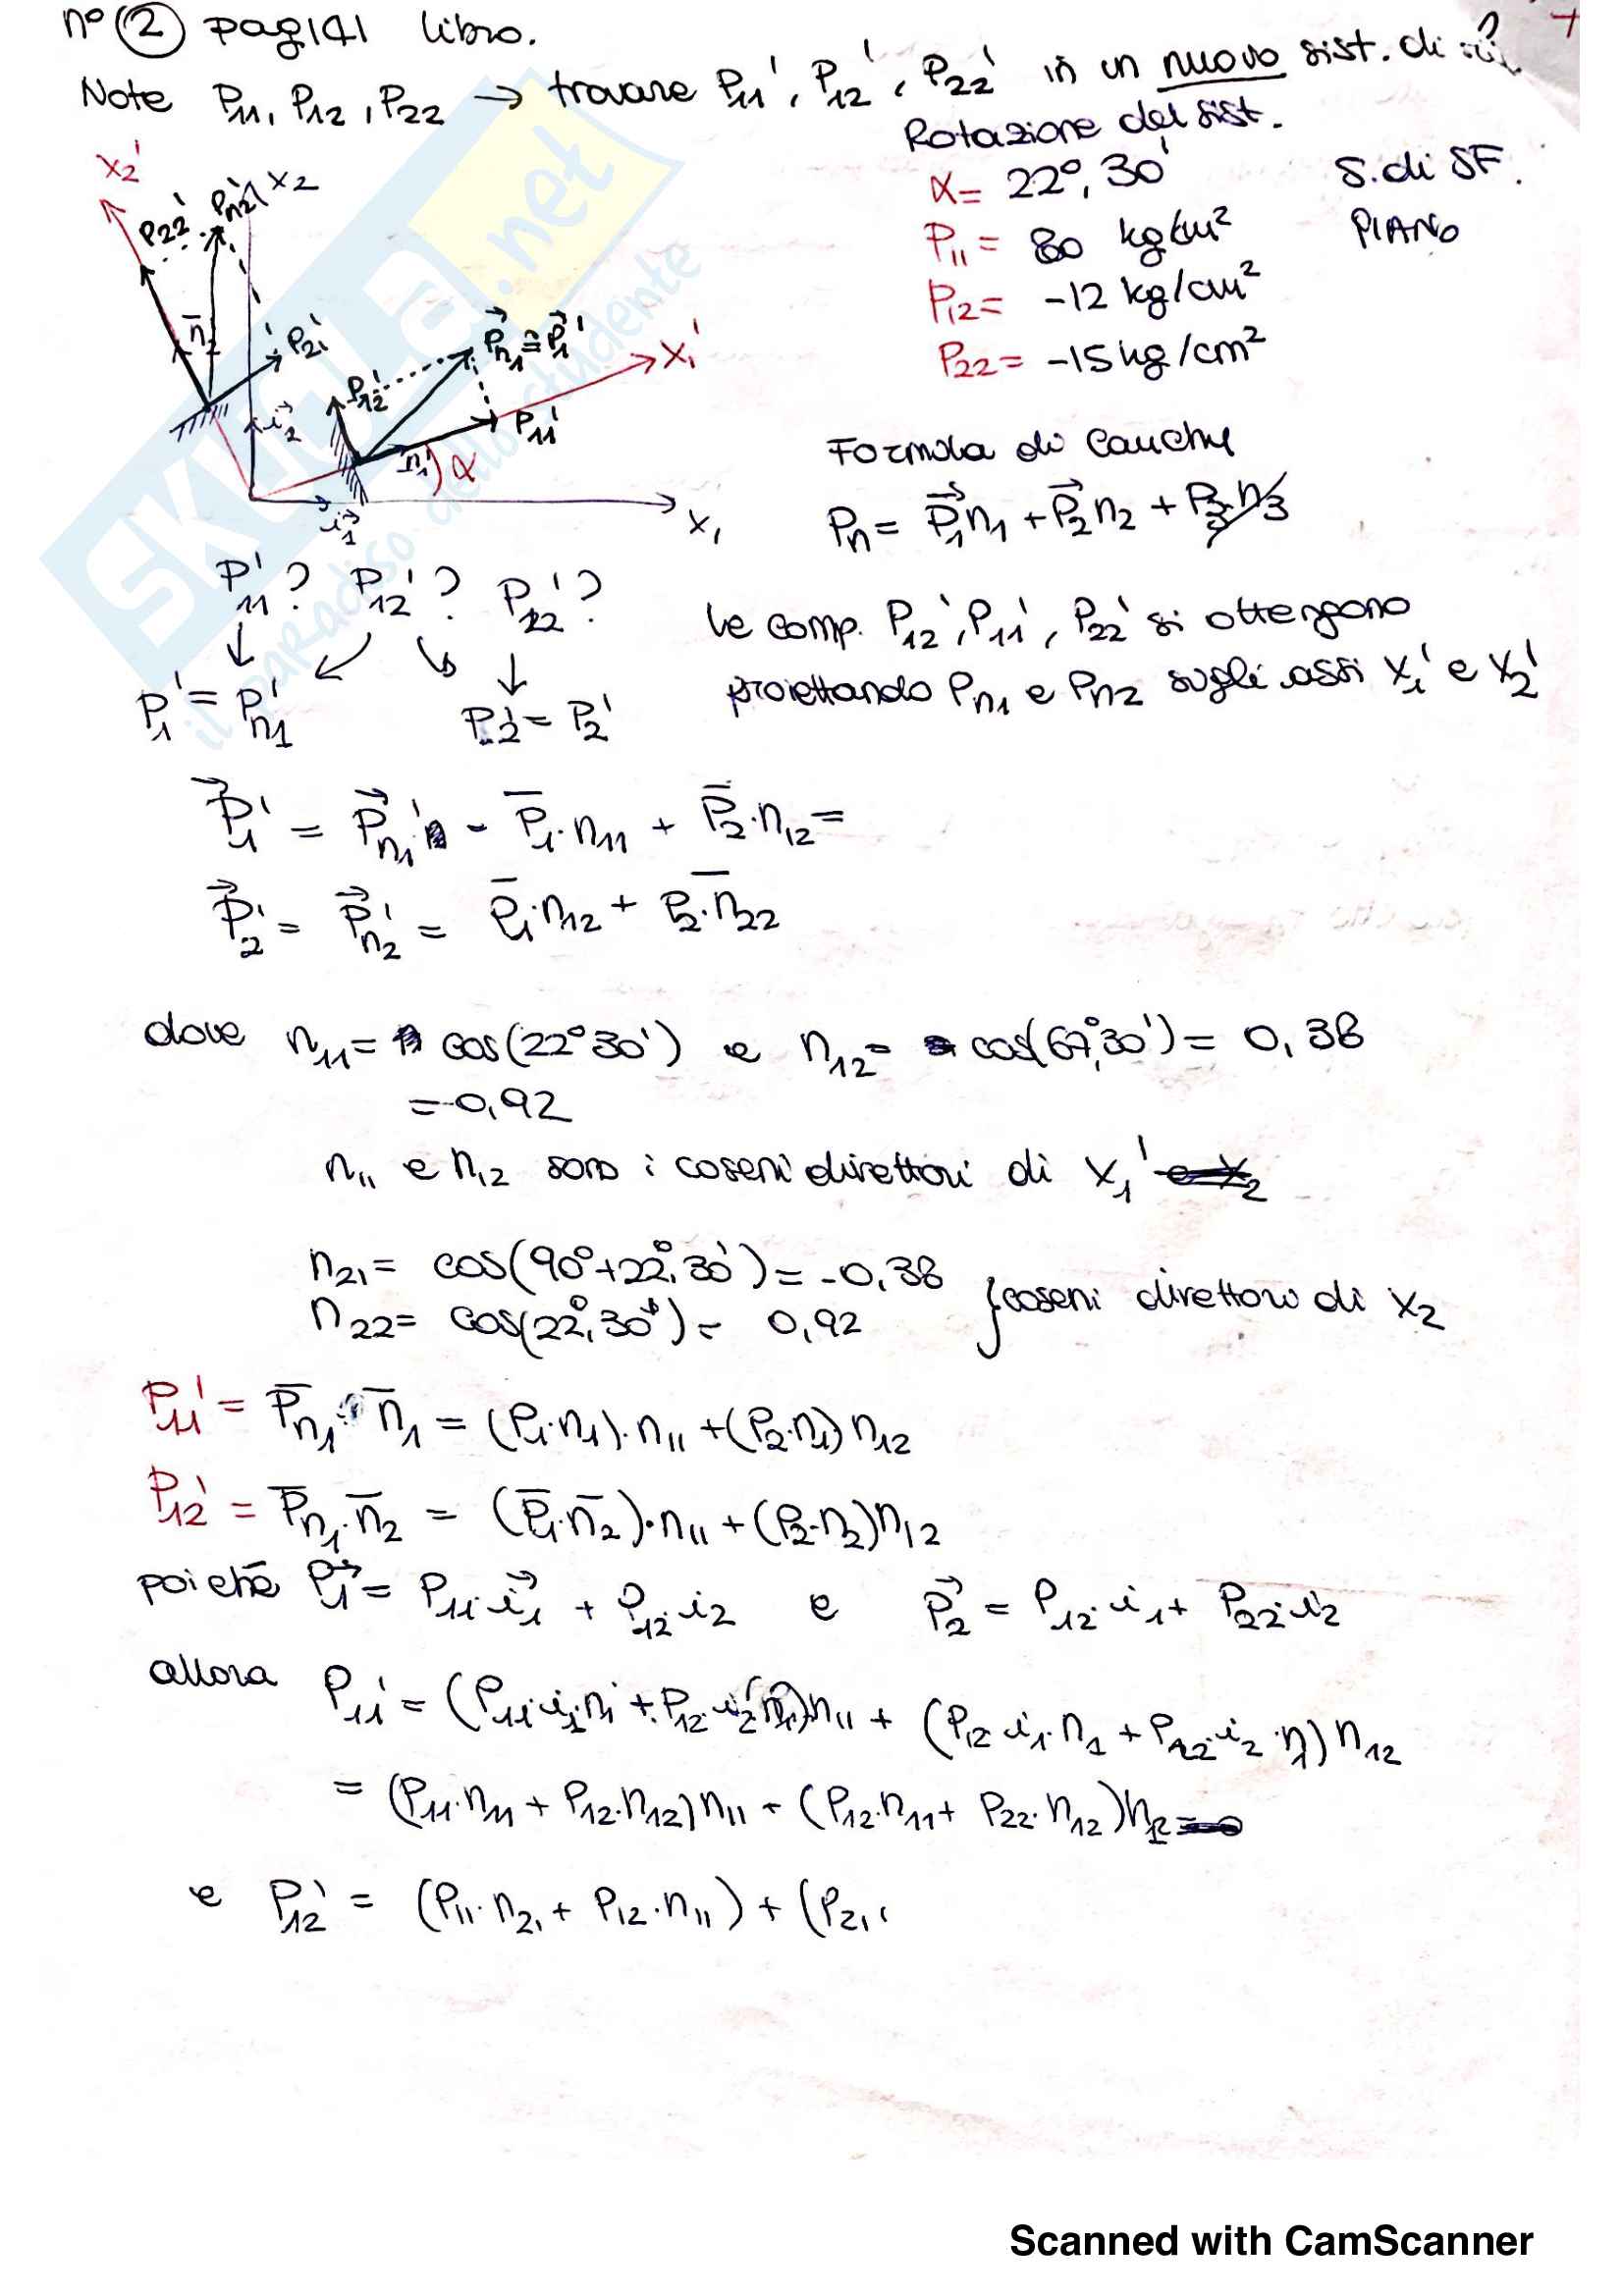 n° (2) pag 141 libro.
Note P11, P12, P22 → trovare P11', P12', P22' in un nuovo sist. di rif.
Rotazione del sist.
α = 22°,30'
S. di SF.
P11 = 80 kg/cm²
PIANO
P12 = -12 kg/cm²
P22 = -15 kg/cm²
x2'
P22' Pn2' x2
n2 P2i'
Pn1 ≅ P1' x1'
P12'
i2 P11'
n1 α
i1 x1
Formula di Cauchy
Pn = P1 n1 + P2 n2 + P3 n3
P11'? P12'? P22'?
P1' = Pn1' P2' = P2'
Le comp. P12', P11', P22' si ottengono
proiettando Pn1 e Pn2 sugli assi x1' e x2'
P1' = Pn1' = P1·n11 + P2·n12 =
P2' = Pn2' = P1·n12 + P2·n22
dove n11 = cos(22°30') e n12 = cos(67°,30') = 0,38
= 0,92
n11 e n12 sono i coseni direttori di x1' e x2
n21 = cos(90°+22°,30') = -0,38
n22 = cos(22°,30') = 0,92 } coseni direttori di x2
P11' = Pn1·n1 = (P1·n1)·n11 + (P2·n1) n12
P12' = Pn1·n2 = (P1·n2)·n11 + (P2·n2) n12
poichè P1 = P11·i1 + P12·i2 e P2 = P12·i1 + P22·i2
allora P11' = (P11·i1·n1 + P12·i2·n1) n11 + (P12·i1·n1 + P22·i2·n1) n12
= (P11·n11 + P12·n12) n11 + (P12·n11 + P22·n12) n12
e P12' = (P11·n21 + P12·n11) + (P21·
SKUOLA.net
il paradiso dello studente
Scanned with CamScanner